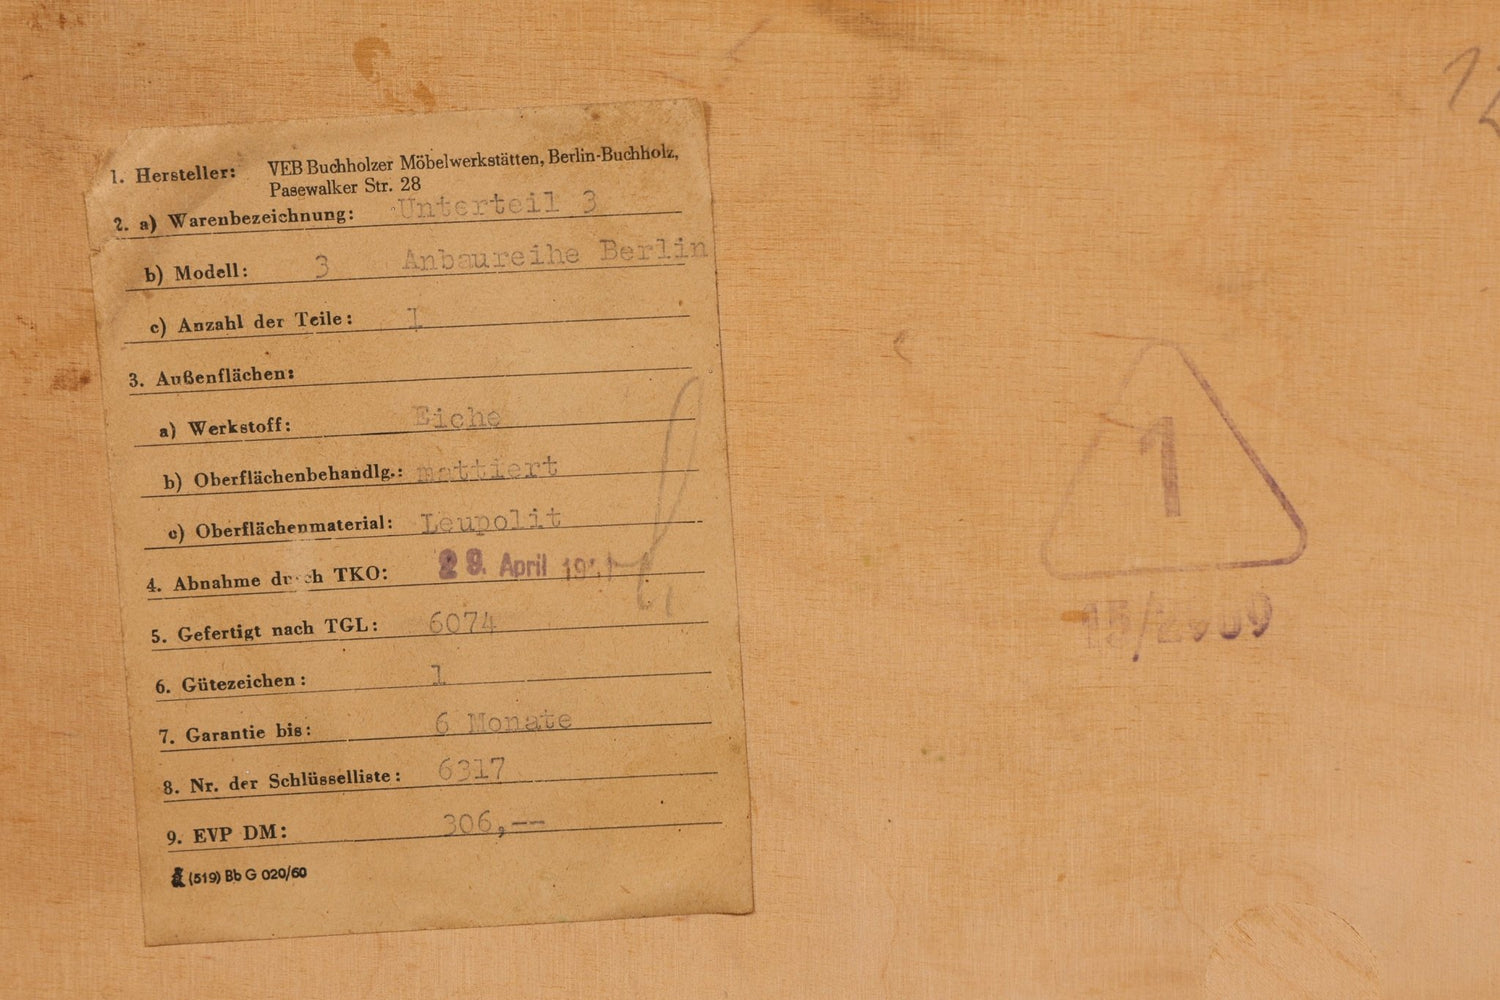 1. Hersteller: VEB Buchholzer Möbelwerkstätten, Berlin-Buchholz,
Pasewalker Str. 28
2. a) Warenbezeichnung: Unterteil 3
b) Modell: 3 Anbaureihe Berlin
c) Anzahl der Teile: I
3. Außenflächen:
a) Werkstoff: Eiche
b) Oberflächenbehandlg.: mattiert
c) Oberflächenmaterial: Leupolit
4. Abnahme durch TKO: 29. April
5. Gefertigt nach TGL: 6074
6. Gütezeichen: 1
7. Garantie bis: 6 Monate
8. Nr. der Schlüsselliste: 6317
9. EVP DM: 306,--
(519) Bb G 020/60
1